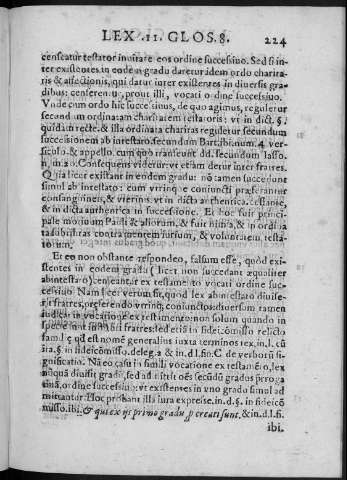 LEX .11. GLOS. 8. 224
censeatur testator inuitare eos ordine successiuo. Sed si in-
ter existentes in eodem gradu daretur idem ordo charita-
tis & affectionis, qui datur inter existentes in diuersis gra-
dibus: censerentur, prout illi, vocati ordine successiuo.
Vnde cum ordo hic successiuus, de quo agimus, reguletur
secundum ordinatam charitatem testatoris: vt in dict. §.
quidam recte. & illa ordinata charitas reguletur secundum
successionem ab intestato. secundum Bart. ibi. num. 4. ver-
siculo. & appello. cum quo transeunt dd. secundum Iason.
n. in. 20. Consequens videtur vt etiam detur inter fratres.
Quia licet existant in eodem gradu: non tamen succedunt
simul ab intestato: cum vtrinque coniuncti præferantur
consanguineis, & vterinis. vt in dicta authentica. cessante,
& in dicta authentica in successione. Et hoc fuit princi-
pale motiuum Pauli & aliorum, & fuit
contra mentem iurium, & voluntatem testa-
toris.
Et eo non obstante respondeo, falsum esse, quod exi-
stentes in eodem gradu (licet non succedant æqualiter
ab intestato) censeantur ex testamento vocati ordine suc-
cessiuo. Nam licet verum sit, quod lex ab intestato diuise-
rit fratres, præferendo vtrinque coniunctos: diuersum tamen
iudicat in vocatione ex testamento: non solum quando in
specie instituti fratres: sed etiã in fideicõmisso relicto
famil. q̃ q̃ est nomẽ generalius iuxta terminos tex. in l. cũ
ita. §. in fideicõmisso. deleg. 2. & in. d. l. fin. C. de verborũ si-
gnificatio. Nã eo casu in simili vocatione ex testamẽto, lex
nũquã diuisit gradũ, sed admittit oẽs secũdũ gradus prroga
tiuã, ordine successiuo: vt existentes in vno gradu simul ad
mittantur. Hoc probant illa iura expresse. in. d. §. in fideicõ
misso. ibi. & qui ex ijs primo gradu p creati sunt. & in. d. l. fi.
ibi.